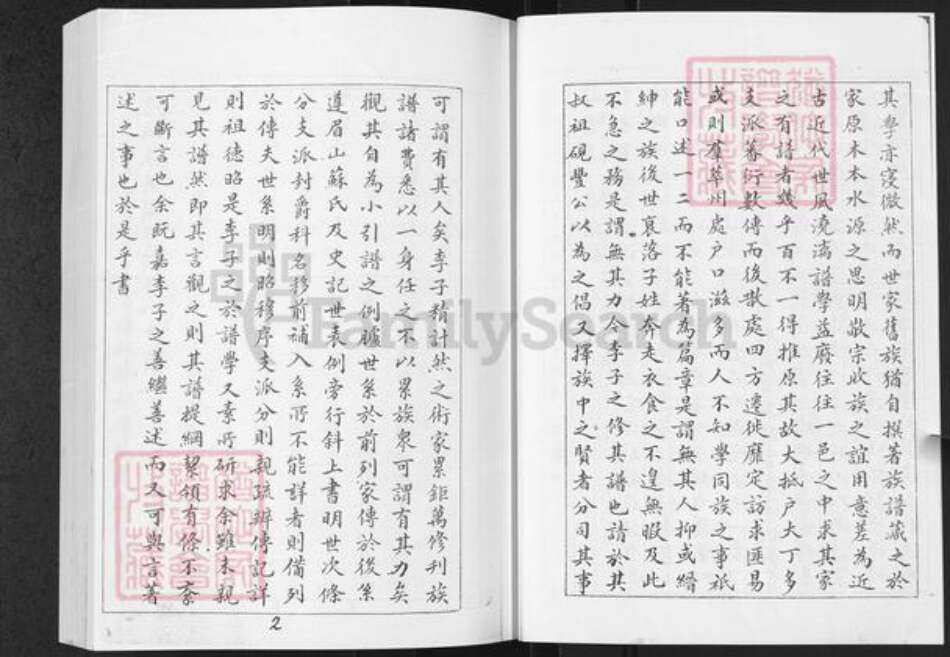 其學亦寖微然而世家舊族猶自撰著族譜藏之於
家原本本水源之思明敬宗收族之誼用意差為近
古近代世風澆漓譜學益廢往往一邑之中求其家
之有譜者幾乎百不一得推原其故大抵戶大丁多
支派蕃衍數傳而後散處四方遷徙靡定訪求匪易
或則羣萃州處戶口滋多而人不知學同族之事祇
能口述一二而不能著為篇章是謂無其人抑或縉
紳之族後世衰落子姓奔走衣食之不遑無暇及此
不急之務是謂無其力今李子之修其譜也請於其
叔祖硯豐公以為之倡又擇族中之賢者分司其事
可謂有其人矣李子精計然之術家累鉅萬修刊族
譜諸費悉以一身任之不以累族眾可謂有其力矣
觀其自為小引譜之例臚世系於前列家傳於後系
遵眉山蘇氏及史記世表例旁行斜上書明世次條
分支派封爵科名移前補入系所不能詳者則備列
於傳夫世系明則昭移序支派分則親疏辦傳記詳
則祖德昭是李子之於譜學又素所研求余雖未親
見其譜然即其言觀之則其譜提綱挈領有條不紊
可斷言也余既嘉李子之善繼善述而又可與言著
述之事也於是乎書
2
FamilySearch